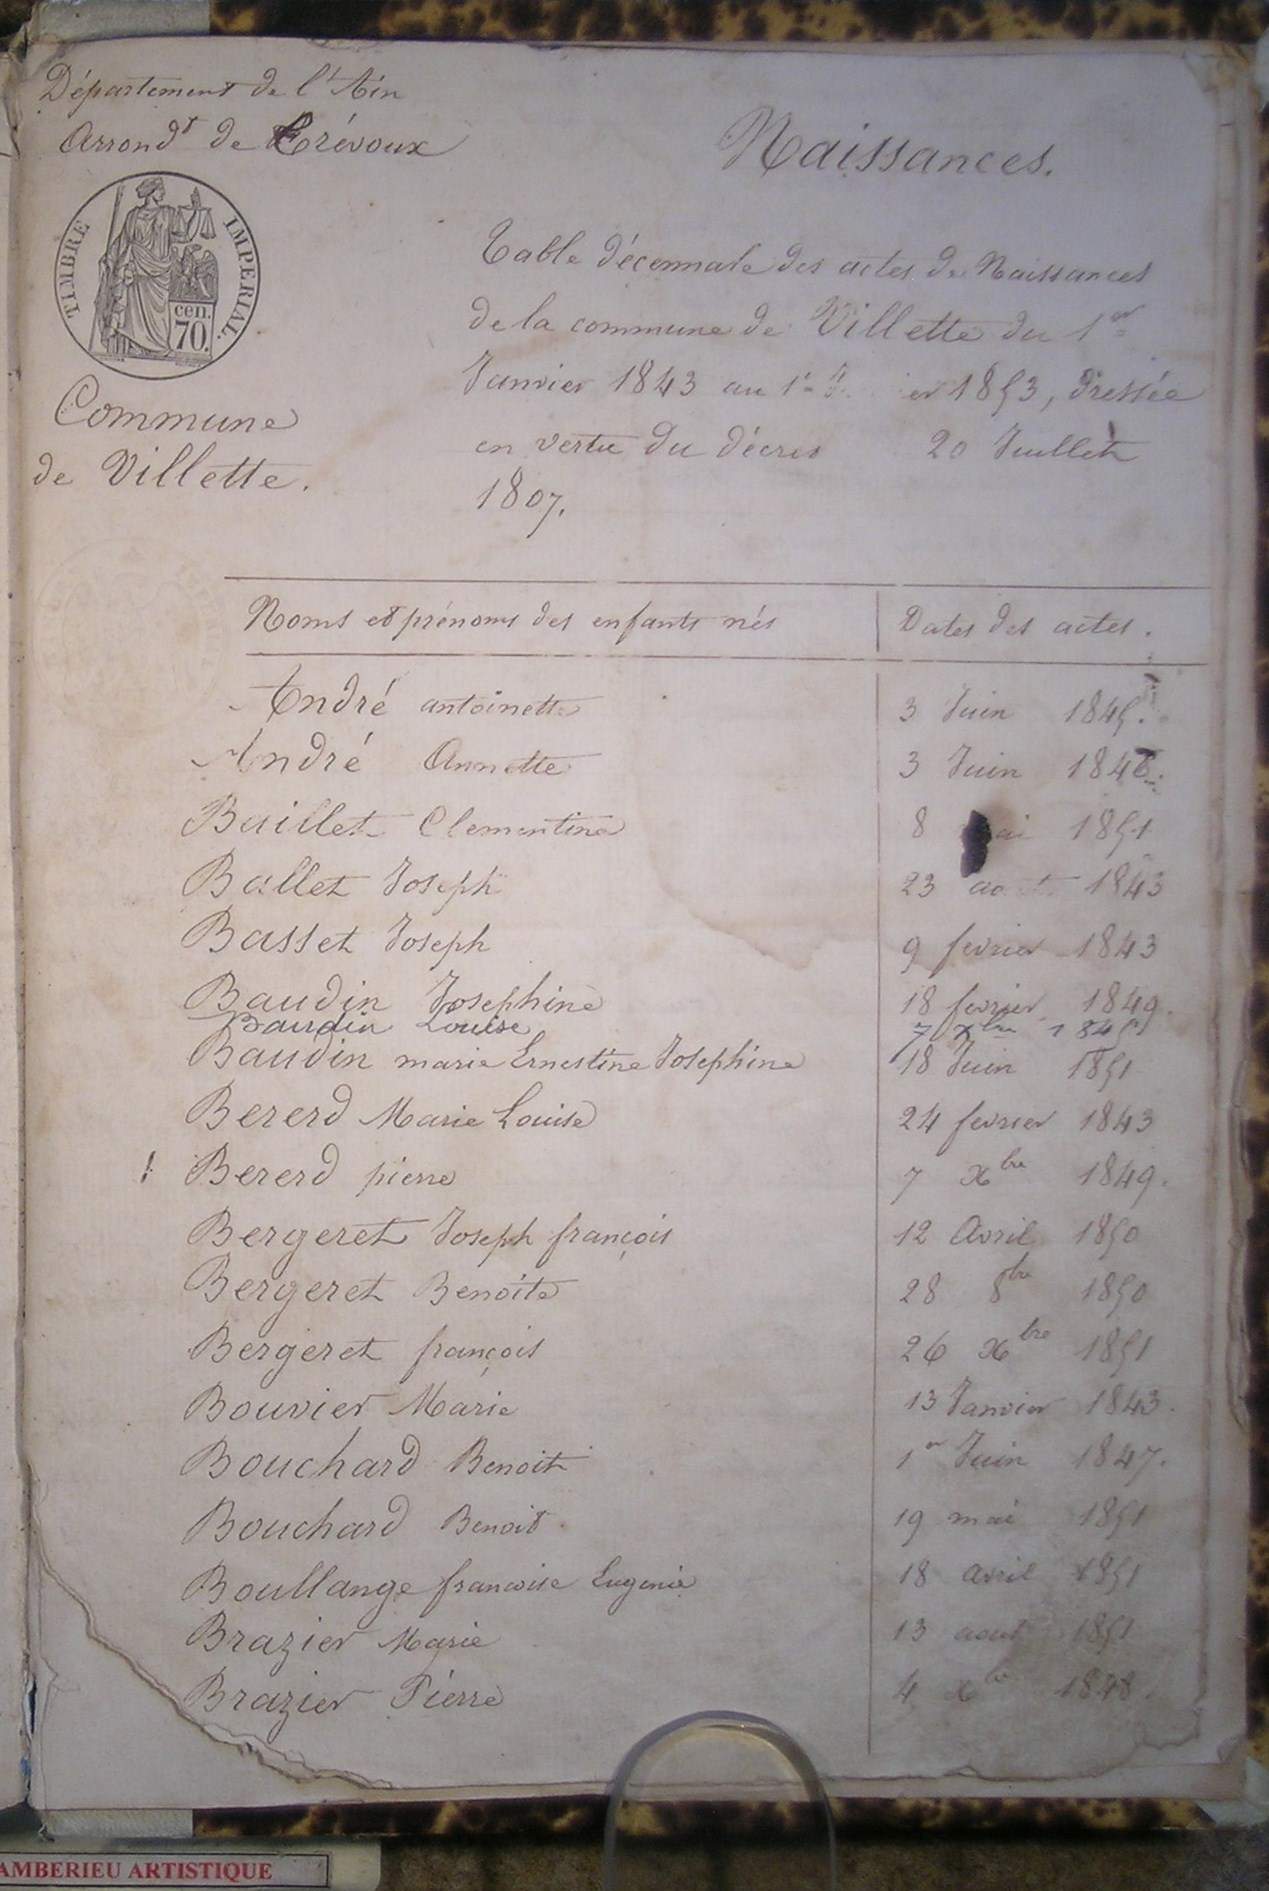 Département de l'Ain
Arrond^t de Trévoux
Naissances.
TIMBRE IMPERIAL.
cen.
70.
Commune
de Villette.
Table décennale des actes de Naissances
de la commune de Villette du 1^er
Janvier 1843 au 1^er 1853, dressée
en vertu du décret 20 Juillet
1807.
Noms et prénoms des enfants nés Dates des actes.
André antoinette 3 Juin 1845.
André Annette 3 Juin
Baillet Clementine 8 1851
Ballet Joseph 23 1843
Basset Joseph 9 fevrier 1843
Baudin Josephine 18 fevrier 1849.
Baudin Louise 7 x^bre 1845
Baudin marie Ernestine Josephine 18 Juin 1851
Bererd Marie Louise 24 fevrier 1843
Bererd pierre 7 x^bre 1849.
Bergeret Joseph françois 12 Avril 1850
Bergeret Benoite 28 8^bre 1850
Bergeret françois 26 x^bre 1851
Bouvier Marie 13 Janvier 1843.
Bouchard Benoit 1^er Juin 1847.
Bouchard Benoit 19 mai 1851
Boullange francoise Eugenie 18 avril 1851
Brazier Marie 13 aout 1851
Brazier Pierre 4 x^bre 1848
AMBERIEU ARTISTIQUE